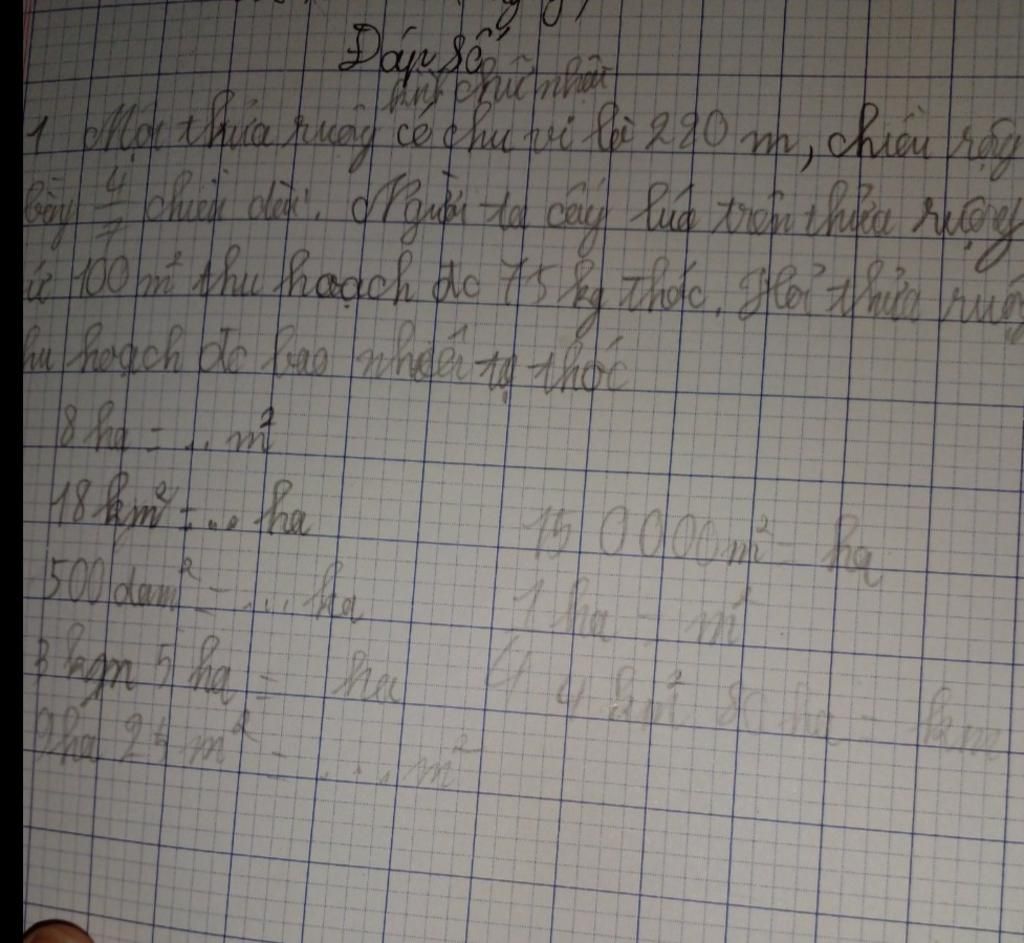 Đáp số
hình chữ nhật
1 Một thửa ruộng có chu vi là 220 m, chiều rộng
bằng 4/7 chiều dài. Người ta cấy lúa trên thửa ruộng
cứ 100 m² thu hoạch đc 75 kg thóc. Hỏi thửa ruộng
thu hoạch đc bao nhiêu tạ thóc
8 ha = .. m²
18 km² = ... ha
150000 m² = ha
500 dam² = .... ha
1 ha = m²
5 ha = ha
4 km² ha = km
9ha 25 m² = .... m²